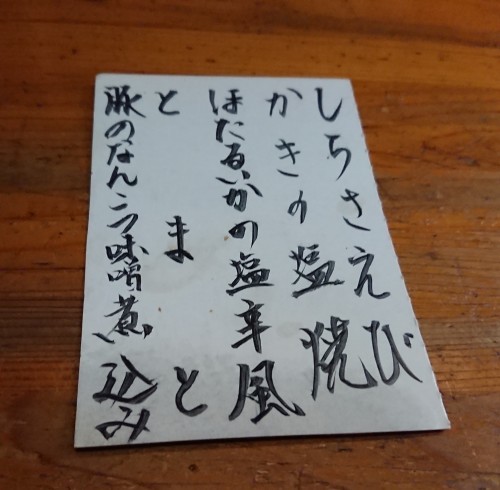 しらさえび
かきの塩焼
ほたるいかの塩辛風
とまと
豚のなんこつ味噌煮込み